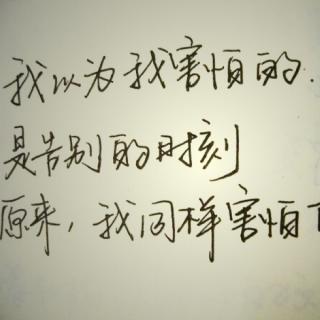 我以为我害怕的.
是告别的时刻
原来，我同样害怕